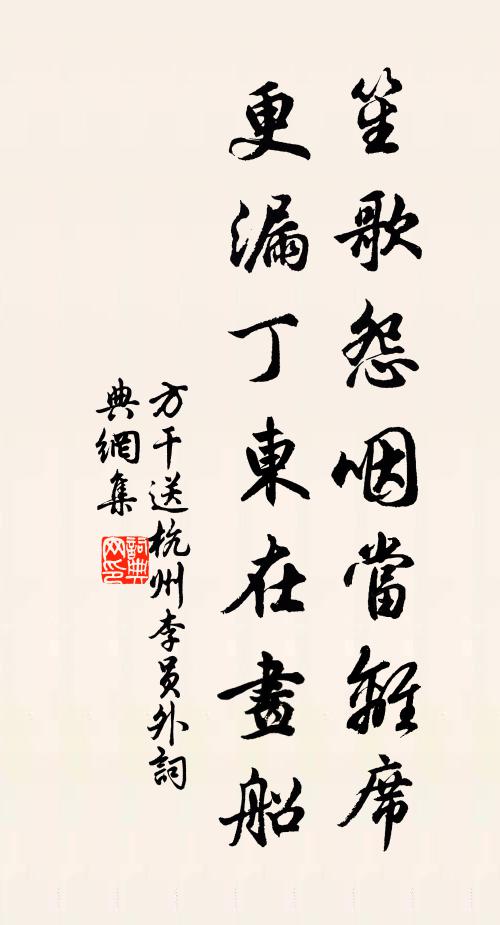 笙歌怨咽當離席
更漏丁東在畫船
方干送杭州李员外詞
典網集
詞典
网印